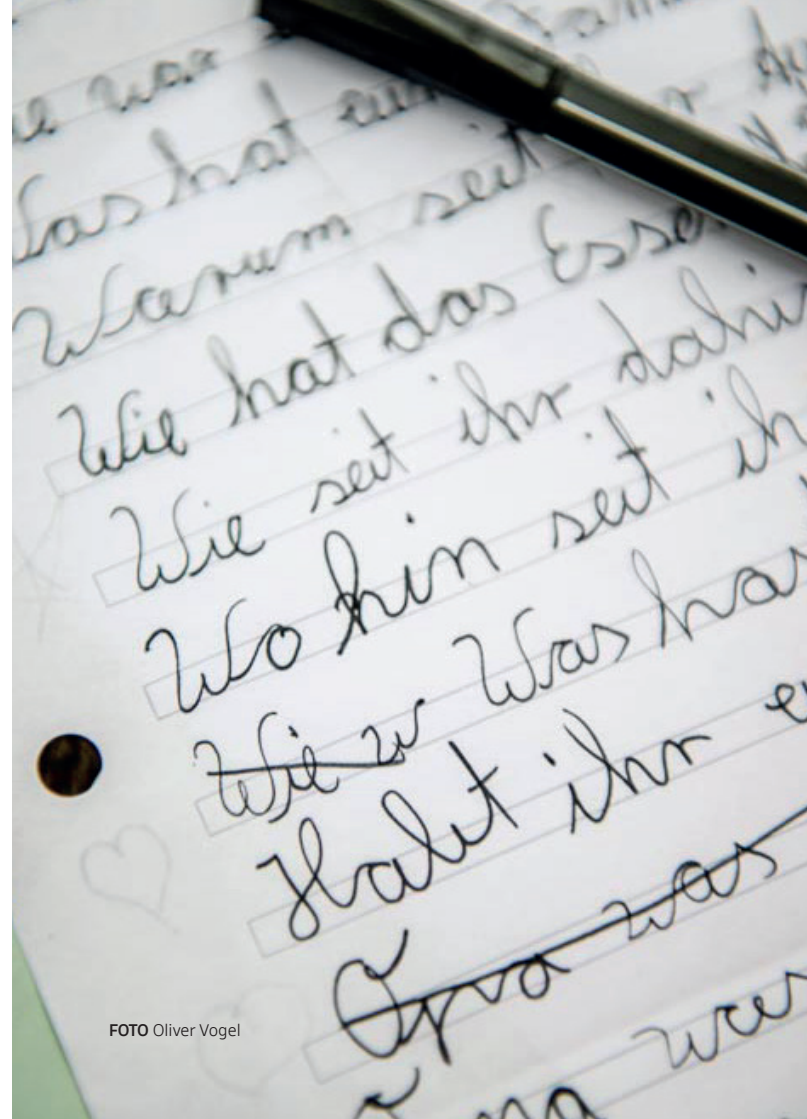 war
Was hat
Warum seit
Wie hat das Esse
Wie seit ihr dahi
Wo hin seit ih
Wie w Was has
Habt ihr e
Opa was
wer
FOTO Oliver Vogel